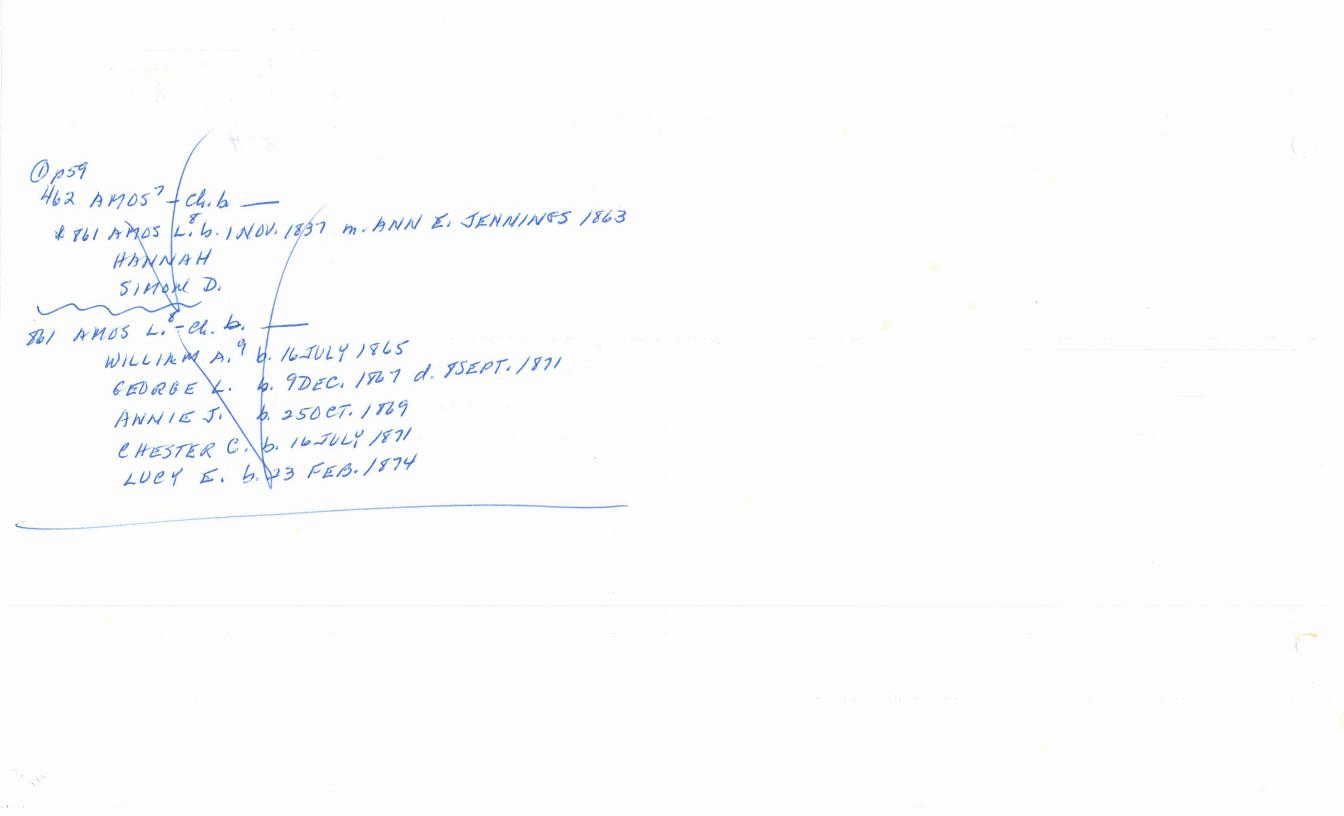 ① p59
462 AMOS⁷ - Ch. b —
* 861 AMOS L.⁸ b. 1 NOV. 1837 m. ANN E. JENNINGS 1863
HANNAH
SIMON D.
861 AMOS L.⁸ - Ch. b. —
WILLIAM A.⁹ b. 16 JULY 1865
GEORGE L. b. 9 DEC. 1867 d. 8 SEPT. 1871
ANNIE J. b. 25 OCT. 1869
CHESTER C. b. 16 JULY 1871
LUCY E. b. 23 FEB. 1874